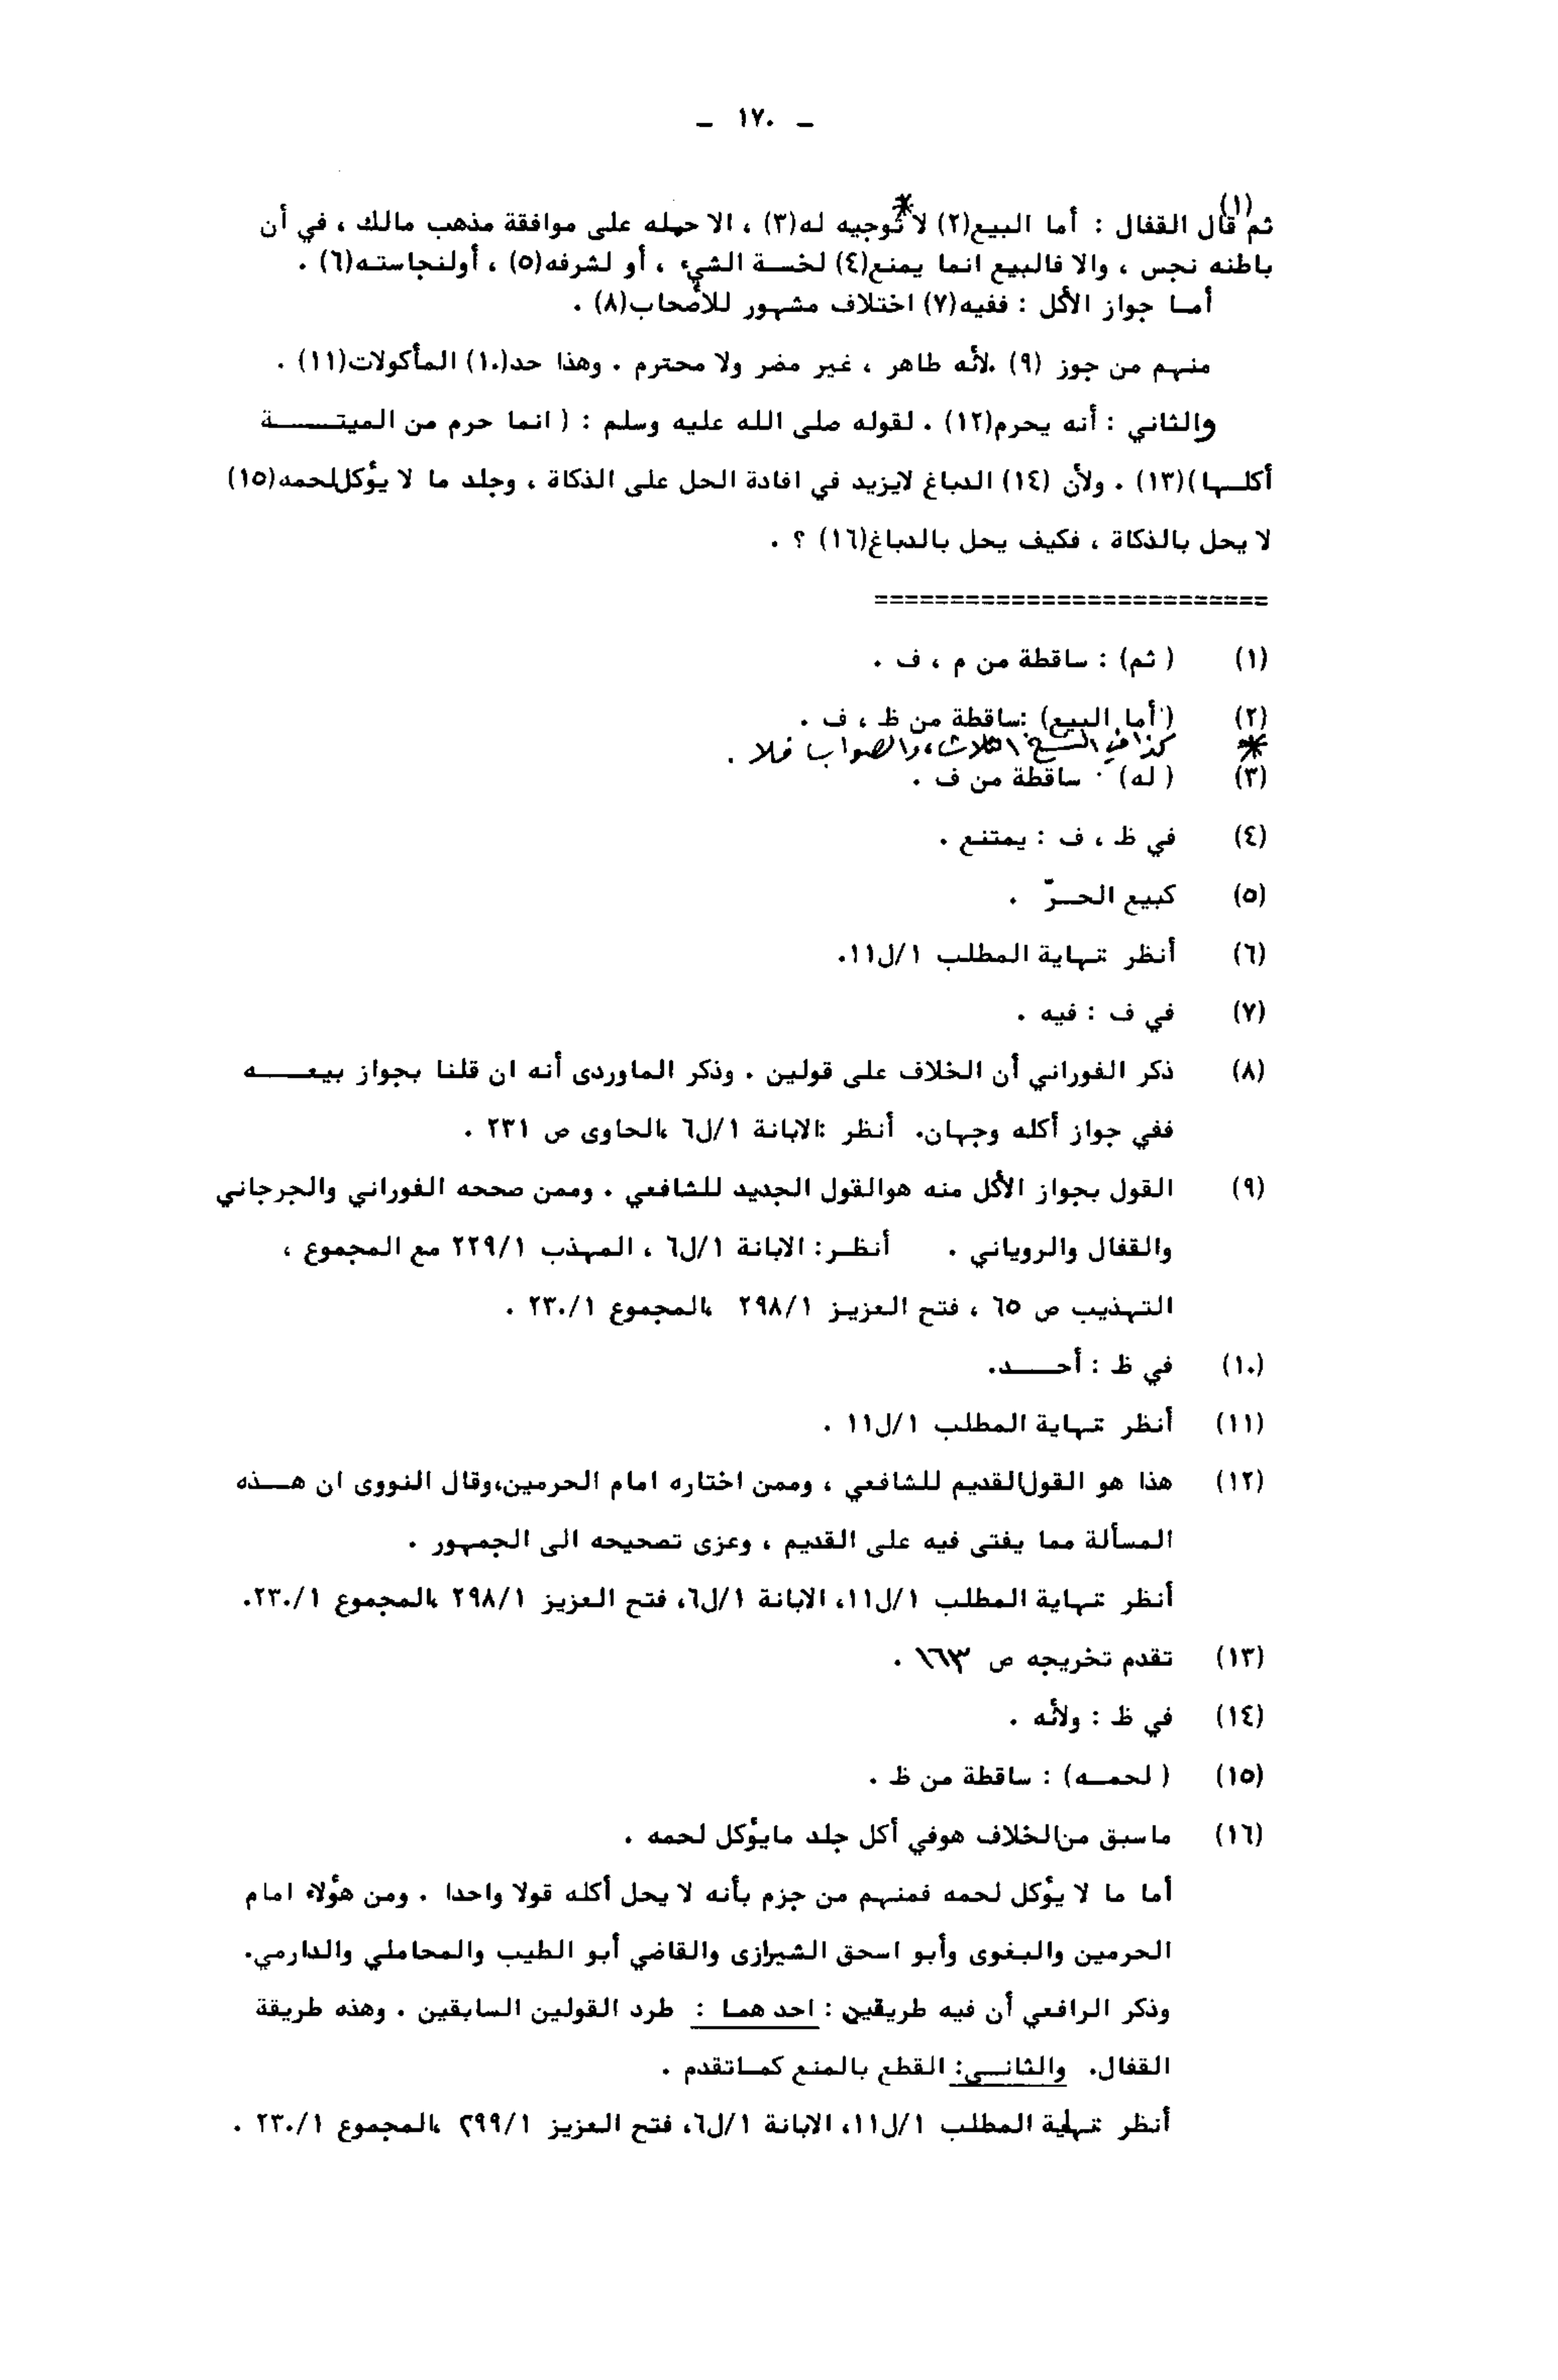 ـ ١٧٠ ـ
ثم(١) قال القفال : أما البيع(٢) لا* توجيه له(٣) ، الا حمله على موافقة مذهب مالك ، في أن
باطنه نجس ، والا فالبيع انما يمنع(٤) لخسة الشيء ، أو لشرفه(٥) ، أولنجاسته(٦) .
أما جواز الأكل : ففيه(٧) اختلاف مشهور للأصحاب(٨) .
منهم من جوز (٩) .لأنه طاهر ، غير مضر ولا محترم . وهذا حد(١٠) المأكولات(١١) .
والثاني : أنه يحرم(١٢) . لقوله صلى الله عليه وسلم : ( انما حرم من الميتـــــــة
أكلـها)(١٣) . ولأن (١٤) الدباغ لايزيد في افادة الحل على الذكاة ، وجلد ما لا يؤكل لحمه(١٥)
لا يحل بالذكاة ، فكيف يحل بالدباغ(١٦) ؟ .
==========================
(١) ( ثم) : ساقطة من م ، ف .
(٢) ( أما البيع) :ساقطة من ظ ، ف .
* كذا في النسخ الثلاث ، والصواب فلا .
(٣) ( له) ساقطة من ف .
(٤) في ظ ، ف : يمتنع .
(٥) كبيع الحـرّ .
(٦) أنظر نهاية المطلب ١/ل١١.
(٧) في ف : فيه .
(٨) ذكر الفوراني أن الخلاف على قولين . وذكر الماوردى أنه ان قلنا بجواز بيعـــــه
ففي جواز أكله وجهان. أنظر :الابانة ١/ل٦ ،الحاوى ص ٢٣١ .
(٩) القول بجواز الأكل منه هوالقول الجديد للشافعي . وممن صححه الفوراني والجرجاني
والقفال والروياني . أنظـر: الابانة ١/ل٦ ، المهذب ٢٢٩/١ مع المجموع ،
التهذيب ص ٦٥ ، فتح العزيز ٢٩٨/١ ،المجموع ٢٣٠/١ .
(١٠) في ظ : أحـــــد.
(١١) أنظر نهاية المطلب ١/ل١١ .
(١٢) هذا هو القول القديم للشافعي ، وممن اختاره امام الحرمين،وقال النووى ان هـــذه
المسألة مما يفتى فيه على القديم ، وعزى تصحيحه الى الجمهور .
أنظر نهاية المطلب ١/ل١١، الابانة ١/ل٦، فتح العزيز ٢٩٨/١ ،المجموع ٢٣٠/١.
(١٣) تقدم تخريجه ص ١٦٣ .
(١٤) في ظ : ولأنه .
(١٥) ( لحمـه) : ساقطة من ظ .
(١٦) ماسبق من الخلاف هوفي أكل جلد مايؤكل لحمه .
أما ما لا يؤكل لحمه فمنهم من جزم بأنه لا يحل أكله قولا واحدا . ومن هؤلاء امام
الحرمين والبغوى وأبو اسحق الشيرازى والقاضي أبو الطيب والمحاملي والدارمي.
وذكر الرافعي أن فيه طريقين : احدهما : طرد القولين السابقين . وهذه طريقة
القفال. والثانـي: القطع بالمنع كمـاتقدم .
أنظر نهاية المطلب ١/ل١١، الابانة ١/ل٦، فتح العزيز ٢٩٩/١ ،المجموع ٢٣٠/١ .